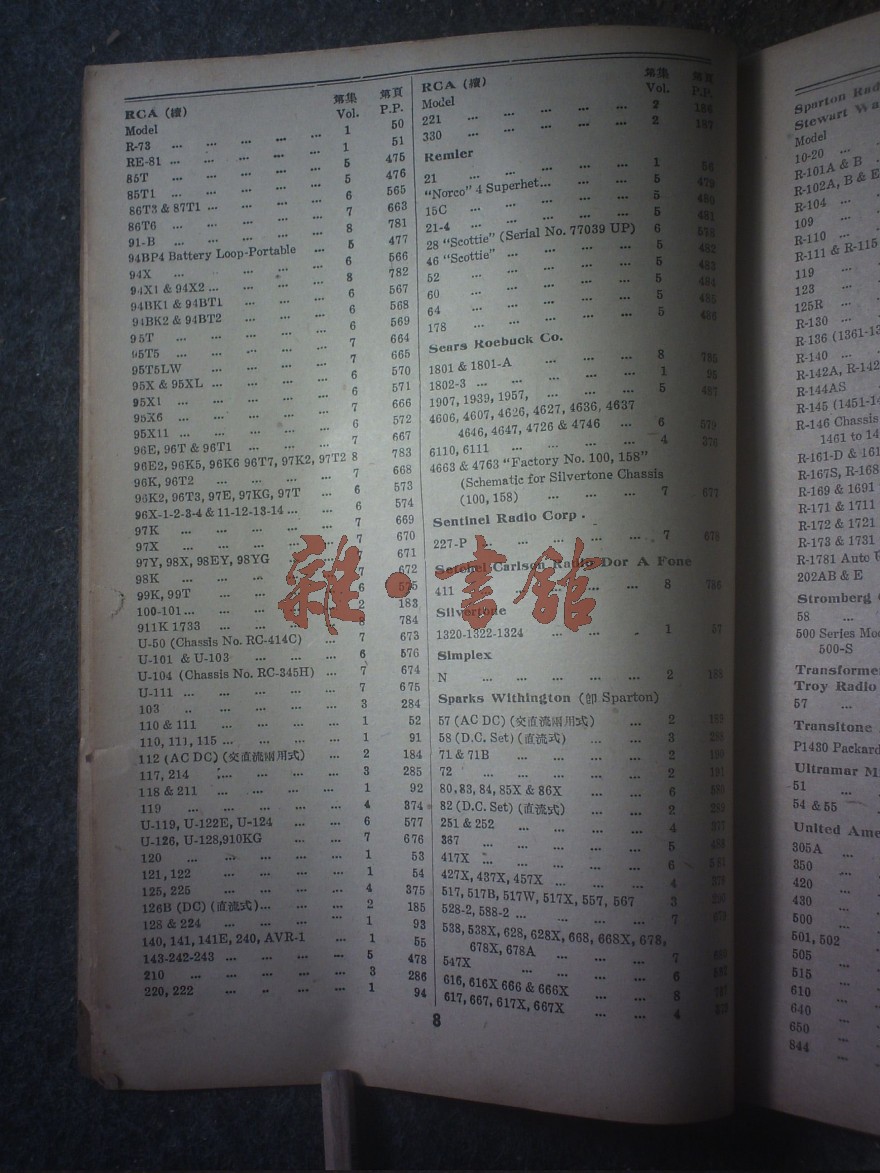 RCA (續) 第集 第頁
Model Vol. P.P.
R-73 ... ... ... ... ... 1 50
RE-81 ... ... ... ... ... 1 51
85T ... ... ... ... ... 5 475
85T1 ... ... ... ... ... 5 476
86T3 & 87T1 ... ... ... ... 6 565
86T6 ... ... ... ... ... 7 663
91-B ... ... ... ... ... 8 781
94BP4 Battery Loop-Portable ... 5 477
94X ... ... ... ... 6 566
94X1 & 94X2 ... ... ... ... 8 782
94BK1 & 94BT1 ... ... ... 6 567
94BK2 & 94BT2 ... ... ... 6 568
95T ... ... ... ... ... 6 569
95T5 ... ... ... ... ... 7 664
95T5LW ... ... ... ... 7 665
95X & 95XL ... ... ... ... 6 570
95X1 ... ... ... ... ... 6 571
95X6 ... ... ... ... ... 7 666
95X11 ... ... ... ... ... 6 572
96E, 96T & 96T1 ... ... ... 7 667
96E2, 96K5, 96K6 96T7, 97K2, 97T2 8 783
96K, 96T2 ... ... ... ... 7 668
96K2, 96T3, 97E, 97KG, 97T ... 6 573
96X-1-2-3-4 & 11-12-13-14 ... ... 6 574
97K ... ... ... ... ... 7 669
97X ... ... ... ... ... 7 670
97Y, 98X, 98EY, 98YG ... ... 7 671
98K ... ... ... ... ... 7 672
99K, 99T ... ... ... ... 6 575
100-101 ... ... ... ... ... 2 183
911K 1733 ... ... ... ... 8 784
U-50 (Chassis No. RC-414C) ... 7 673
U-101 & U-103 ... ... ... 6 576
U-104 (Chassis No. RC-345H) ... 7 674
U-111 ... ... ... ... ... 7 675
103 .. ... ... ... ... 3 284
110 & 111 ... ... ... ... 1 52
110, 111, 115 ... ... ... ... 1 91
112 (AC DC) (交直流兩用式) ... 2 184
117, 214 ... ... ... ... 3 285
118 & 211 ... ... ... ... 1 92
119 ... ... ... ... ... 4 374
U-119, U-122E, U-124 ... ... 6 577
U-126, U-128,910KG ... ... 7 676
120 ... ... ... ... ... 1 53
121, 122 ... ... ... ... 1 54
125, 225 ... ... ... ... 4 375
126B (DC) (直流式)... ... ... 2 185
128 & 224 ... ... ... ... 1 93
140, 141, 141E, 240, AVR-1 ... 1 55
143-242-243 ... ... ... ... 5 478
210 ... ... ... ... ... 3 286
220, 222 ... ... ... ... 1 94
RCA (續) 第集 第頁
Model Vol. P.P.
221 ... ... ... ... ... 2 186
330 ... ... ... ... ... 2 187
Remler
21 ... ... ... ... ... 1 56
"Norco" 4 Superhet... ... ... 5 479
15C ... ... ... ... ... 5 480
21-4 ... ... ... ... ... 5 481
28 "Scottie" (Serial No. 77039 UP) 6 578
46 "Scottie" ... ... ... ... 5 482
52 ... ... ... ... ... 5 483
60 ... ... ... ... ... 5 484
64 ... ... ... ... ... 5 485
178 ... ... ... ... ... 5 486
Sears Roebuck Co.
1801 & 1801-A ... ... ... 8 785
1802-3 ... ... ... ... ... 1 95
1907, 1939, 1957, ... ... ... 5 487
4606, 4607, 4626, 4627, 4636, 4637
4646, 4647, 4726 & 4746 ... ... 6 579
6110, 6111 ... ... ... ... 4 376
4663 & 4763 "Factory No. 100, 158"
(Schematic for Silvertone Chassis
(100, 158) ... ... ... 7 677
Sentinel Radio Corp .
227-P ... ... ... ... ... 7 678
Setchel Carlson Radio Dor A Fone
411 ... ... ... ... ... 8 786
Silvertone
1320-1322-1324 ... ... . 1 57
Simplex
N ... ... ... ... ... 2 188
Sparks Withington (卽 Sparton)
57 (AC DC) (交直流兩用式) ... 2 189
58 (D.C. Set) (直流式) ... ... 3
71 & 71B ... ... ... ... 2 190
72 ... ... ... ... ... 2 191
80, 83, 84, 85X & 86X ... ... 6 580
82 (D.C. Set) (直流式) ... ... 2
251 & 252 ... ... ... ... 4 377
367 ... ... ... ... ... 5 488
417X ... ... ... ... ... 6 581
427X, 437X, 457X ... ... ... 4 378
517, 517B, 517W, 517X, 557, 567 3
528-2, 588-2 ... ... ... ... 7 679
538, 538X, 628, 628X, 668, 668X, 678,
678X, 678A ... ... ... 7
547X ... ... ... ... 6
616, 616X 666 & 666X ... ... 8
617, 667, 617X, 667X ... ... 4
8
雜·書館
Sparton Rad
Stewart Wa
Model
10-20 ...
R-101A & B ...
R-102A, B & E
R-104 ...
109 ...
R-110 ...
R-111 & R-115
119 ...
123 ...
125R ...
R-130 ...
R-136 (1361-13
R-140 ...
R-142A, R-142
R-144AS
R-145 (1451-14
R-146 Chassis
1461 to 14
R-161-D & 161
R-167S, R-168
R-169 & 1691
R-171 & 1711
R-172 & 1721
R-173 & 1731
R-1781 Auto U
202AB & E
Stromberg
58 ...
500 Series Mo
500-S
Transforme
Troy Radio
57 ...
Transitone
P1430 Packard
Ultramar M
51 ...
54 & 55 ...
United Ame
305A ...
350 ...
420 ...
430 ...
500 ...
501, 502 ...
505 ...
515 ...
610 ...
640 ...
650 ...
844 ...